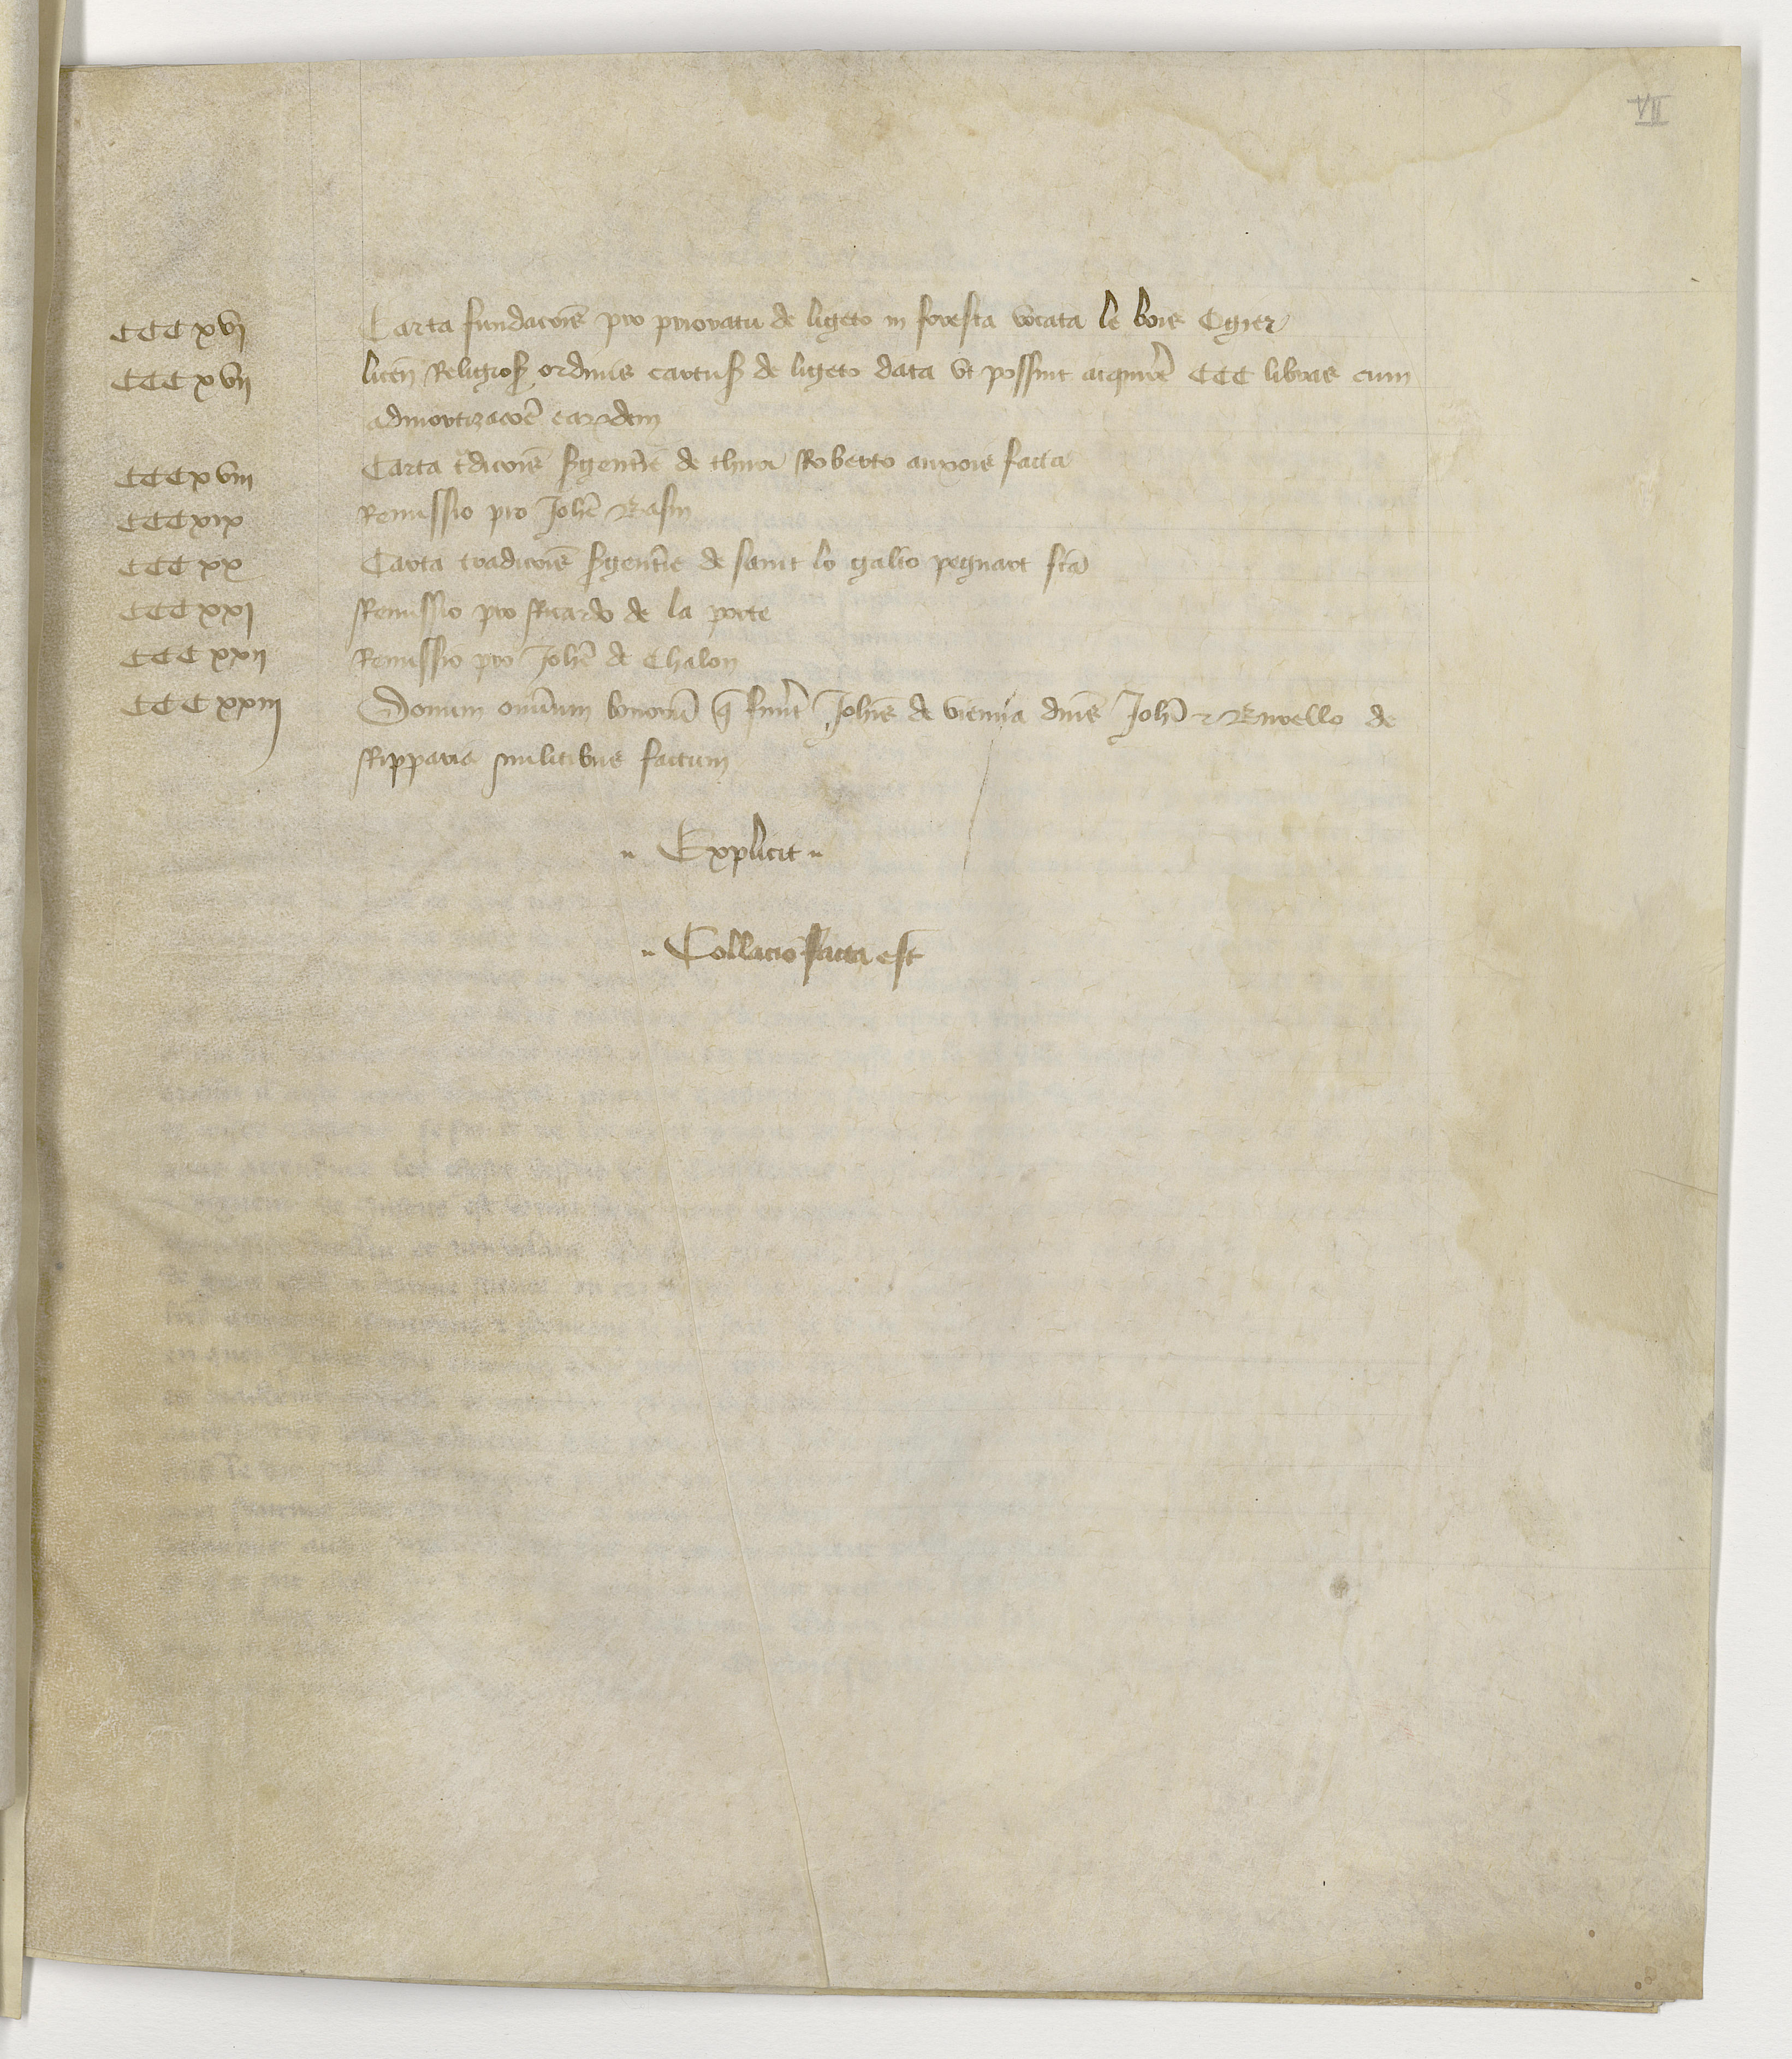 VII
CCCXVI Carta fundacõis pro prioratu de ligeto in foresta vocata le bois Ogier
CCCXVII licen Religios ordinis cartus de ligeto data vt possint acquirẽ CCC libras cum
admortizacõẽ earūdem
CCCXVIII Carta tradicõis Sgentẽie de Roberto facta
CCCXIX Remissio pro Johẽ Basin
CCCXX Carta tradicõis Sgentẽie de saint lo facta
CCCXXI Remissio pro Ricardo de la porte
CCCXXII Remissio pro Johẽ de Chalon
CCCXXIII Donum omniũm bonorũ q̃ fuerũt Johis de vienna dñis Johĩ & de
Ripparia militibus factum
Explicit
Collacio facta est